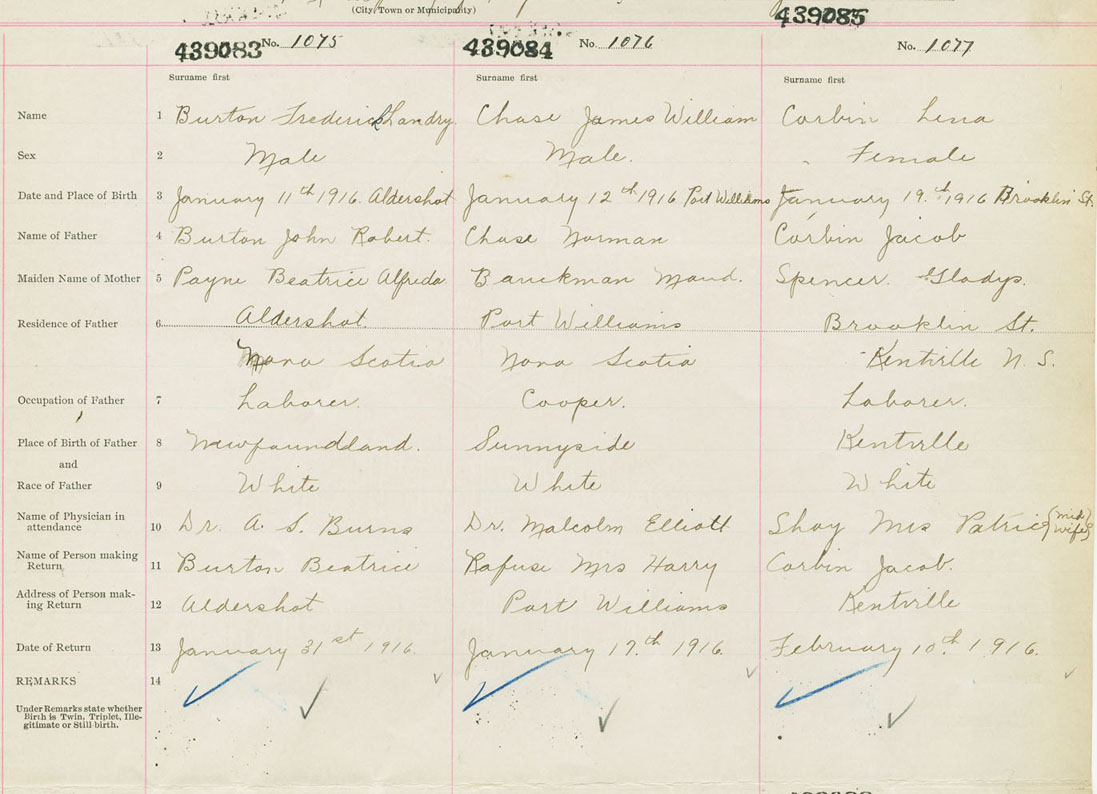 (City, Town or Municipality)
439083 No. 1075 439084 No. 1076 439085 No. 1077
Surname first Surname first Surname first
Name 1 Burton Frederick Landry. Chase James William Corbin Lena
Sex 2 Male Male. Female
Date and Place of Birth 3 January 11th 1916. Aldershot January 12th 1916 Port Williams January 19th 1916 Brooklin St.
Name of Father 4 Burton John Robert. Chase Norman Corbin Jacob
Maiden Name of Mother 5 Payne Beatrice Alfreda Banckman Maud. Spencer. Gladys.
Residence of Father 6 Aldershot. Port Williams Brooklin St.
Nova Scotia Nova Scotia Kentville N. S.
Occupation of Father 7 Laborer. Cooper. Laborer.
Place of Birth of Father 8 Newfoundland. Sunnyside Kentville
and
Race of Father 9 White White White
Name of Physician in
attendance 10 Dr. A. S. Burns Dr. Malcolm Elliott Shay Mrs Patric {mid wife}
Name of Person making
Return 11 Burton Beatrice Rafuse Mrs Harry Corbin Jacob.
Address of Person mak-
ing Return 12 Aldershot Port Williams Kentville
Date of Return 13 January 31st 1916. January 17th 1916. February 10th 1916.
REMARKS 14
Under Remarks state whether
Birth is Twin, Triplet, Ille-
gitimate or Still-birth.